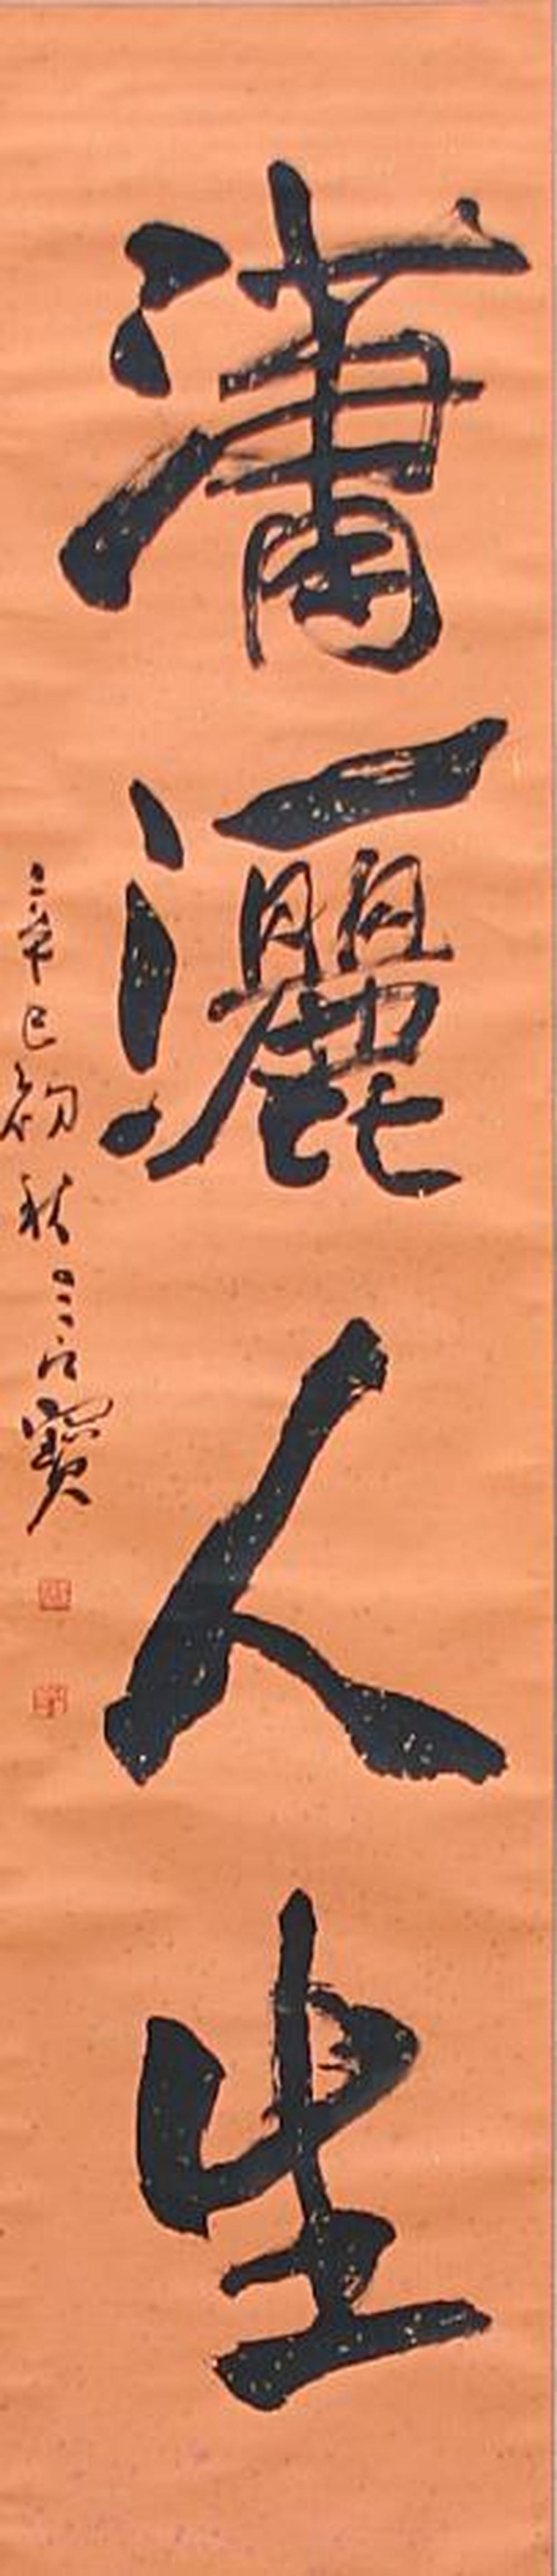 瀟灑人生
辛巳初秋
寶